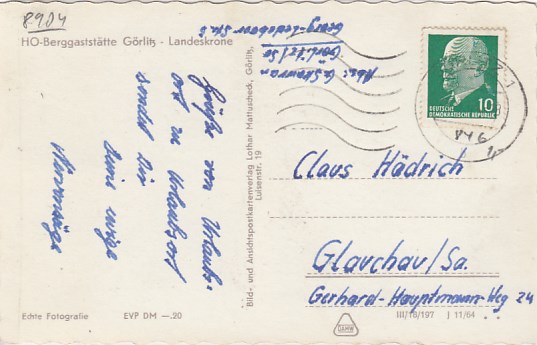 8904
HO-Berggaststätte Görlitz - Landeskrone
Abs:
Görlitz/Sa
Georg-Ledebour Str. 6
Grüße von Urlaubs-
ort zu Urlaubsort
sendet Dir
Bild- und Ansichtspostkartenverlag Lothar Mattuscheck, Görlitz,
Luisenstr. 19
10
DEUTSCHE
DEMOKRATISCHE REPUBLIK
Claus Hädrich
Glauchau/Sa.
Gerhard-Hauptmann-Weg 24
Echte Fotografie EVP DM —.20
III/18/197 J 11/64